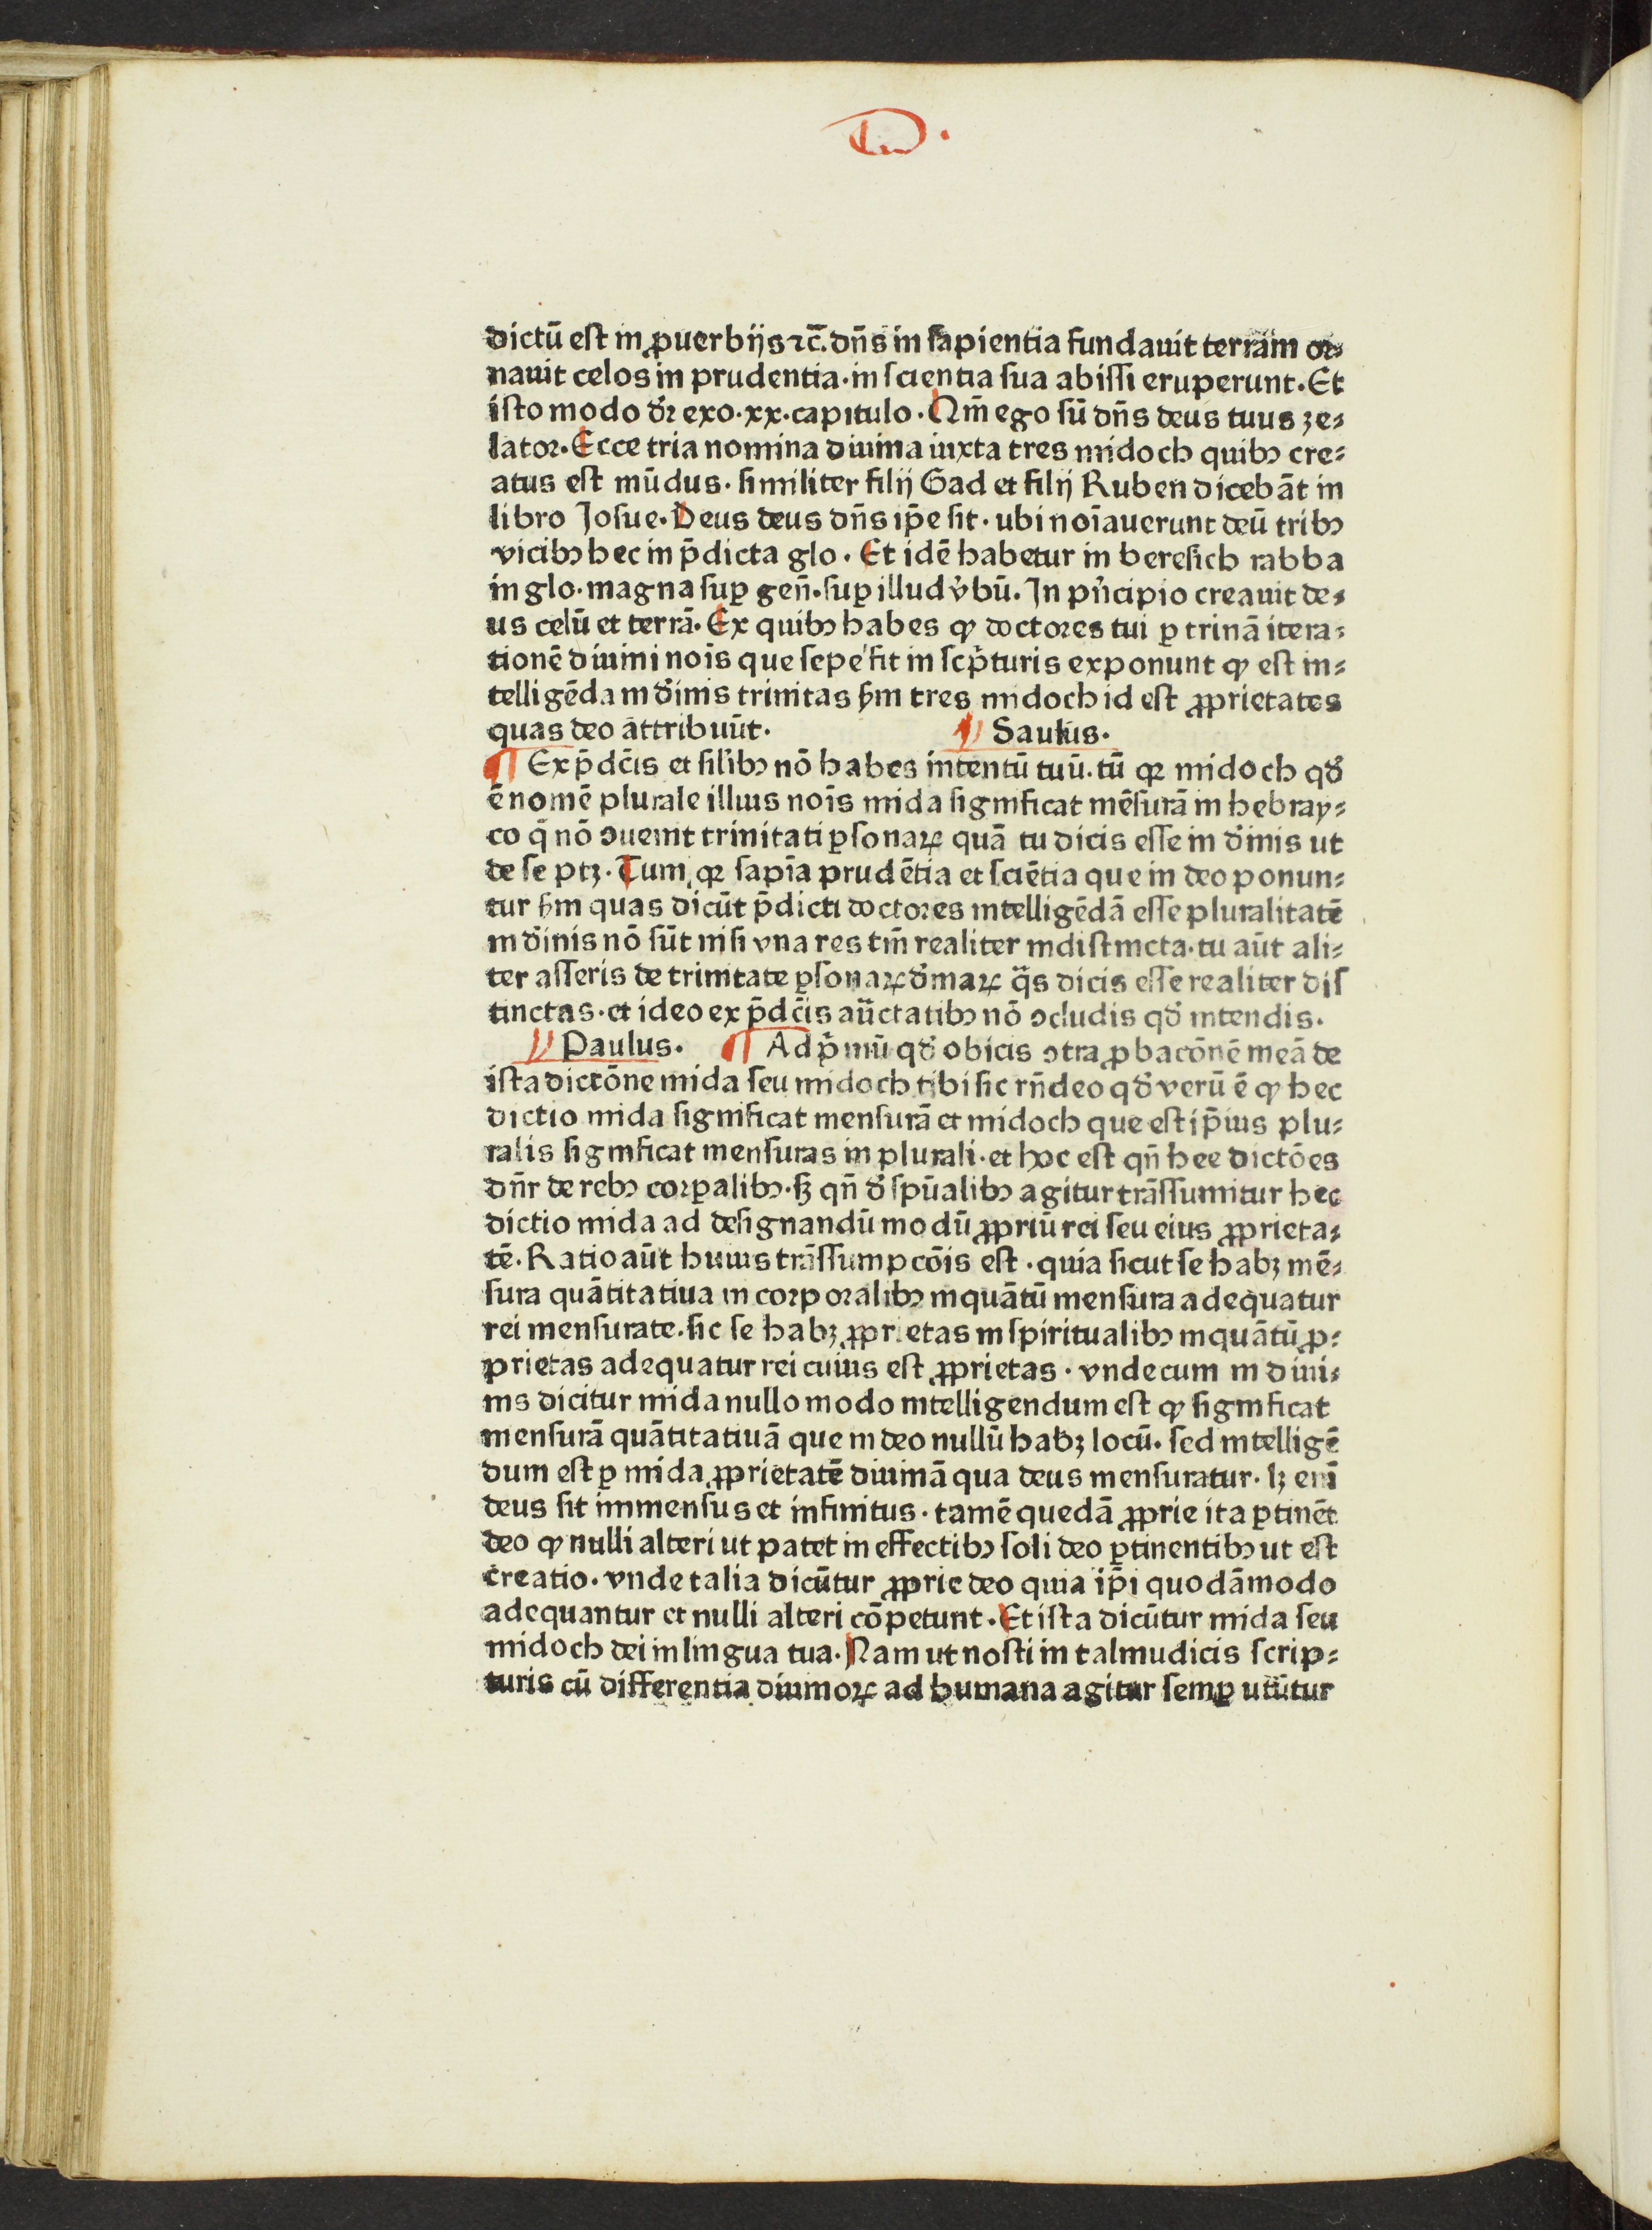 D.
dictū eſt in ꝓuerbijs ⁊c̄. dn̄s in ſapientia fundauit terram or⸗
nauit celos in prudentia · in ſcientia ſua abiſſi eruperunt. Et
iſto modo dr̄ exo · xx · capitulo . Nm̄ ego ſū dn̄s deus tuus ze⸗
lator. Ecce tria nomina diuina iuxta tres midoch quibꝰ cre⸗
atus eſt mūdus. ſimiliter filij Gad et filij Ruben dicebāt in
libro Joſue. Deus deus dn̄s ip̄e ſit. ubi noīauerunt deū tribꝰ
vicibꝰ hec in p̄dicta glo. Et idē habetur in bereſich rabba
in glo. magna ſuꝑ gen̄. ſuꝑ illud v̓bū. In pn̓cipio creauit de⸗
us celū et terrā. Ex quibꝰ habes ꝙ doctores tui ꝑ trinā itera⸗
tionē diuini nois̄ que ſepe fit in ſcp̓turis exponunt ꝙ eſt in⸗
telligēda in diīnis trinitas ẜm tres midoch id eſt ꝓprietates
quas deo attribuūt.
Saulus.
¶ Ex p̄dc̄is et ſilibꝰ nō habes intentū tuū. tū qꝛ midoch qđ
ē nomē plurale illius nois̄ mida ſignificat mēſurā in hebray⸗
co q̄ nō ꝯuenit trinitati ꝑſonaꝝ quā tu dicis eſſe in diīnis ut
de ſe ptꝫ. Tum qꝛ ſapīa prudētia et ſciētia que in deo ponun⸗
tur ẜm quas dicūt p̄dicti doctores intelligēdā eſſe pluralitatē
in diīnis nō ſūt niſi vna res tm̄ realiter indiſtincta. tu aūt ali⸗
ter aſſeris de trinitate ꝑſonaꝝ diīnaꝝ q̄s dicis eſſe realiter diſ
tinctas. et ideo ex p̄dc̄is auc̄tatibꝰ nō ꝯcludis qđ intendis.
Paulus. ¶ Ad p̓mū qđ obicis ꝯtra ꝓbacōnē meā de
iſta dictōne mida ſeu midoch tibi ſic rn̄deo qđ verū ē ꝙ hec
dictio mida ſignificat menſurā et midoch que eſt ip̄ius plu⸗
ralis ſignificat menſuras in plurali. et hoc eſt qn̄ hee dictōes
dn̄r de rebꝰ corꝑalibꝰ. ſꝫ qn̄ đ ſpūalibꝰ agitur trāſſumitur hec
dictio mida ad deſignandū modū ꝓpriū rei ſeu eius ꝓprieta⸗
tē. Ratio aūt huius trāſſumpcōis eſt. quia ſicut ſe habꝫ mē⸗
ſura quātitatiua in corporalibꝰ inquātū menſura adequatur
rei menſurate. ſic ſe habꝫ ꝓprietas in ſpiritualibꝰ inquātū ꝓ⸗
prietas adequatur rei cuius eſt ꝓprietas. vnde cum in diui⸗
nis dicitur mida nullo modo intelligendum eſt ꝙ ſignificat
menſurā quātitatiuā que in deo nullū habꝫ locū. ſed intelligē
dum eſt ꝑ mida ꝓprietatē diuinā qua deus menſuratur. lꝫ enī
deus ſit immenſus et infinitus. tamē quedā ꝓprie ita ꝑtinēt
deo ꝙ nulli alteri ut patet in effectibꝰ ſoli deo ꝑtinentibꝰ ut eſt
creatio. vnde talia dicūtur ꝓprie deo quia ip̄i quodāmodo
adequantur et nulli alteri cōpetunt. Et iſta dicūtur mida ſeu
midoch dei in lingua tua. Nam ut noſti in talmudicis ſcrip⸗
turis cū differentia diuinoꝝ ad humana agitur ſemꝑ utūtur